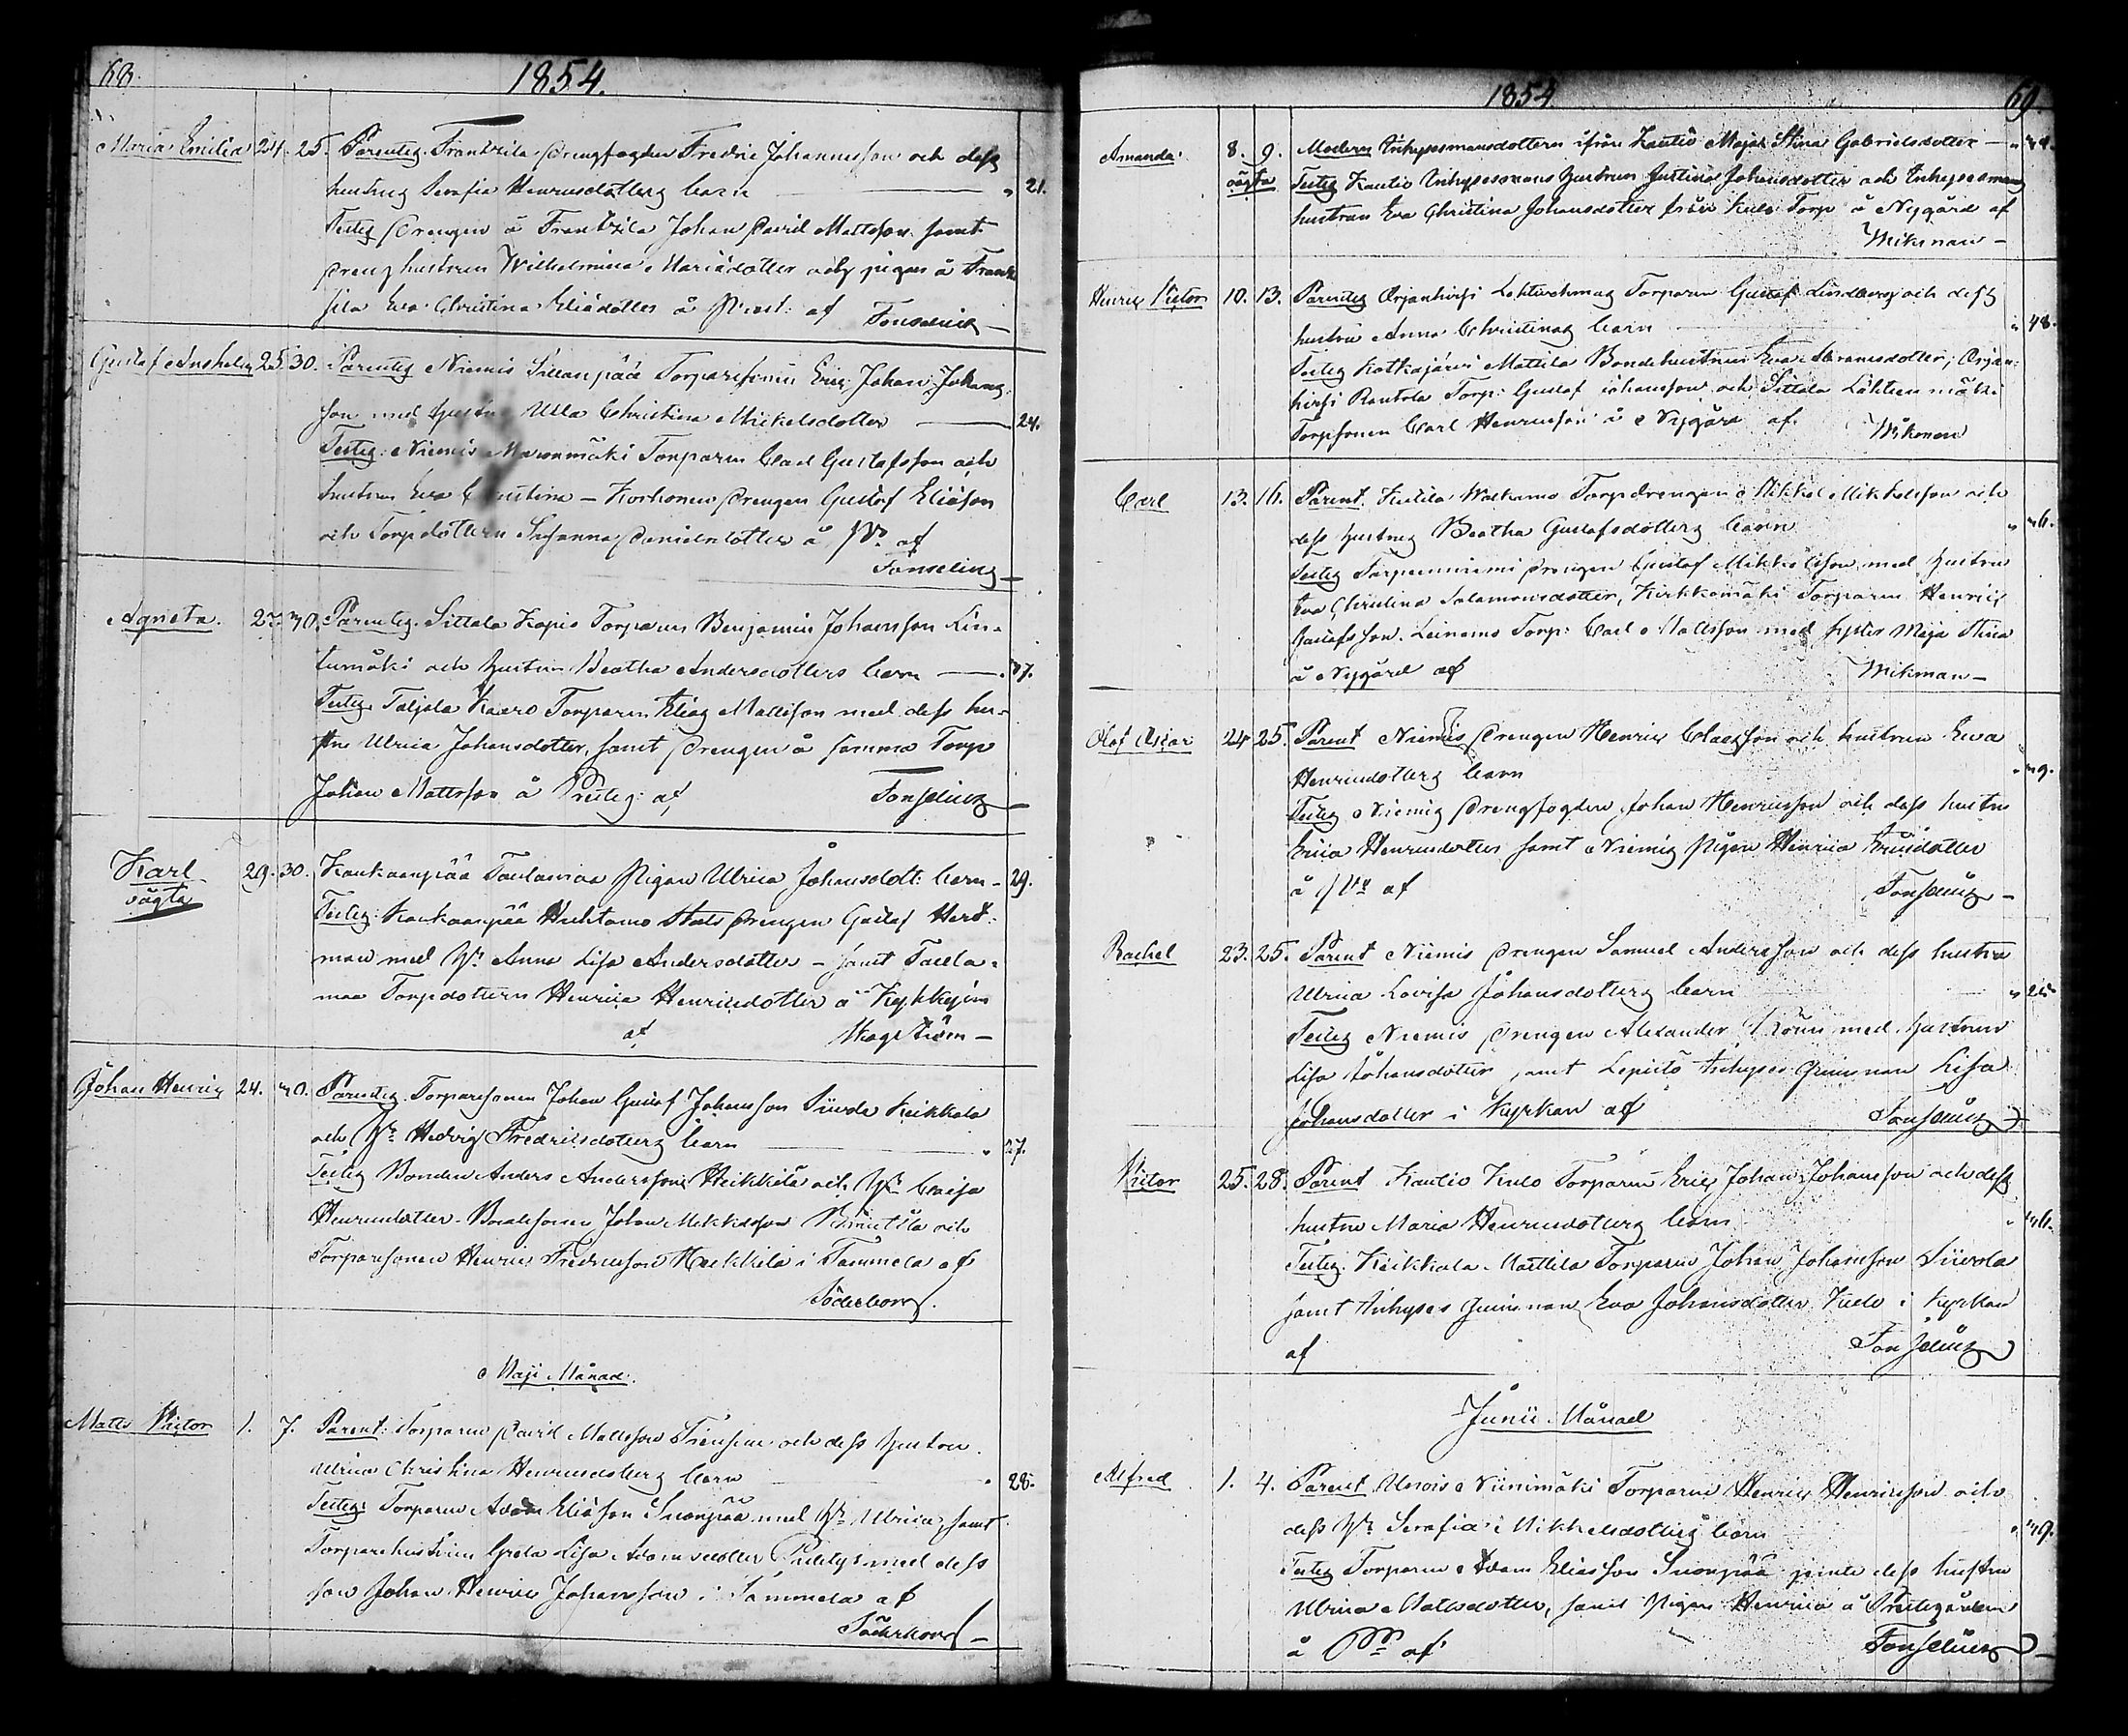 68.
1854.
Maria Emilia 24. 25. Parentes Frantzila Drengfogden Fredric Johannesson och dess
hustrus Serafia Henricsdotters barn — " 21.
Testes Drengen å Frantzila Johan David Mattsson samt
Drenghustrun Wilhelmina Mariædotter och pigan å Frantz
sila Eva Christina Eliædotter å Prest: af Fonselius —
Gustaf Anshelm 25. 30. Parentes Niemis Sillanpää Torparesonen Eric Johan Johans
son med hustru Ulla Christina Mickelsdotter — 24.
Testes: Niemis Torparen Carl Gustafsson och
hustrun Eva Christina — Korhonen Drengen Gustaf Eliæson
och Torpdottern Susanna Danielsdotter å af
Fonselius —
Agneta. 27. 30. Parentes Sillala Kopis Torparen Benjamin Johansson Lin-
tumäki och hustrun Beatha Andersdotters barn — 37.
Testes Taljala Kaaro Torparen Elias Mattsson med dess hu-
stru Ulrica Johansdotter, samt Drengen å samma Torp
Johan Mattsson å Presteg: af Fonselius —
Karl 29. 30. Kankaanpää Taulamaa Pigan Ulrica Johansdott: barn - 29.
oägta Testes: Kankaanpää Huhtamo Drengen Gustaf Hert-
man med Hr Anna Lisa Andersdotter — samt Taula-
maa Torpdottern Henrica Henricsdotter å
af Skogström —
Johan Henric 24. 30. Parentes Torparesonen Johan Gustaf Johansson Siivola Keikkala
och Hr Hedvig Fredricsdotters barn — " 27.
Testes Bonden Anders Andersson Heikkilä och Hr Caisa
Henricsdotter. Bondesonen Johan Mikkelsson och
Torparesonen Henric Fredricsson Heikkilä i Tammela af
Söderborg.
Maji Månad.
Matts Victor 1. 7. Parent: Torparen David Mattsson och dess hustru
Ulrica Christina Henricsdotters barn " 28.
Testes: Torparen Adam Eliæson Suonpää med Hr Ulrica, samt
Torparehustrun Greta Lisa Adamsdotter med dess
son Johan Henric Johansson i Tammela af
Söderborg —
1854
69.
Amanda 8. 9. Modern Inhysesmansdottern ifrån Kautio Maja Stina Gabrielsdotter —
oägta Testes Kautio Inhysesmans hustrun Justina Johansdotter och Inhysesmans
hustrun Eva Christina Johansdotter från Kulo Torp å Nygård af
Wikman —
Henric Victor 10. 13. Parentes Orjanhirsi Torparen Gustaf Lindberg och dess
hustru Anna Christinas barn " 48.
Testes Kotkajärvi Mattila Bondehustrun Eva Abramsdotter, Orjan-
hirsi Rantala Torp: Gustaf Johansson och Sittala
Torpsonen Carl Henricsson å Nygård af Wikman
Carl 13. 16. Parent. Torpdrengen Mikkel Mikkelsson och
dess hustrus Beatha Gustafsdotters barn " 36.
Testes Drengen Gustaf Mikkelsson med hustru
Eva Christina Salamonsdotter, Kirkkomäki Torparen Henric
Gustafsson. Leinamo Torp: Carl Mattsson med syster Maja Stina
å Nygård af Wikman —
Olof Oscar 24 25. Parent Niemis Drengen Henric Claesson och hustrun Eva
Henricsdotters barn " 39.
Testes Niemis Drengfogden Johan Henricsson och dess hustru
Erica Henricsdotter samt Niemis Pigan Henrica Ericsdotter
å af Fonselius —
Rachel 23. 25. Parent Niemis Drengen Samuel Andersson och dess hustru
Ulrica Lovisa Johansdotters barn "
Testes Niemis Drengen Alexander med hustrun
Lisa Johansdotter, samt Lepistö Inhyses Qvinnan Lisa
Johansdotter i Kyrkan af Fonselius
Victor 25. 28. Parent Kautio Kulo Torparen Eric Johan Johansson och dess
hustru Maria Henricsdotters barn " 36.
Testes. Keikkala Mattila Torparen Johan Johansson Siivola
samt Inhyses Qvinnan Eva Johansdotter Kulo i Kyrkan
af Fonselius
Junii Månad
Alfred 1. 4. Parent Torparen Henric Henricsson och
dess Hr Serafia Mikkelsdotters barn " 39.
Testes Torparen Adam Eliasson Suonpää jemte dess hustru
Ulrica Mattsdotter, samt Pigan Henrica å Prestegården
å af Fonselius —